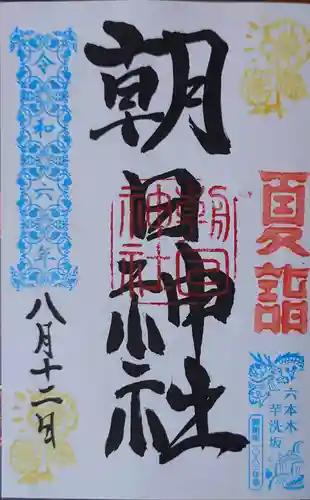 夏詣
六本木
芋洗坂
朝日神社
朝日
神社
令和六年
八月十二日